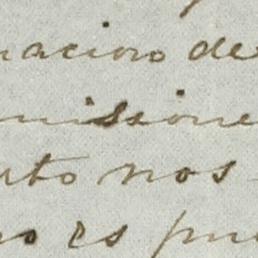 nacion de
misione
nto nos
no es pu